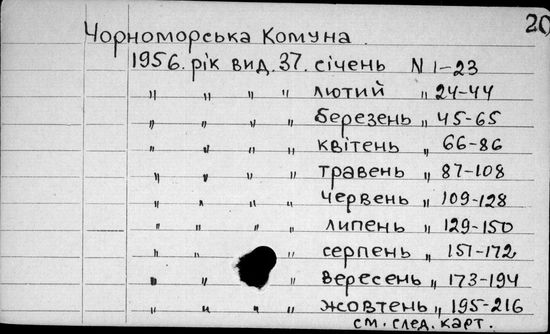 20
Чорноморська Комуна.
1956. рік вид. 37. січень N 1-23
" " " " лютий " 24-44
" " " " березень " 45-65
" " " " квітень " 66-86
" " " " травень " 87-108
" " " " червень " 109-128
" " " " липень " 129-150
" " " серпень " 151-172
" " " вересень " 173-194
" " " " жовтень " 195-216
см. след. карт.